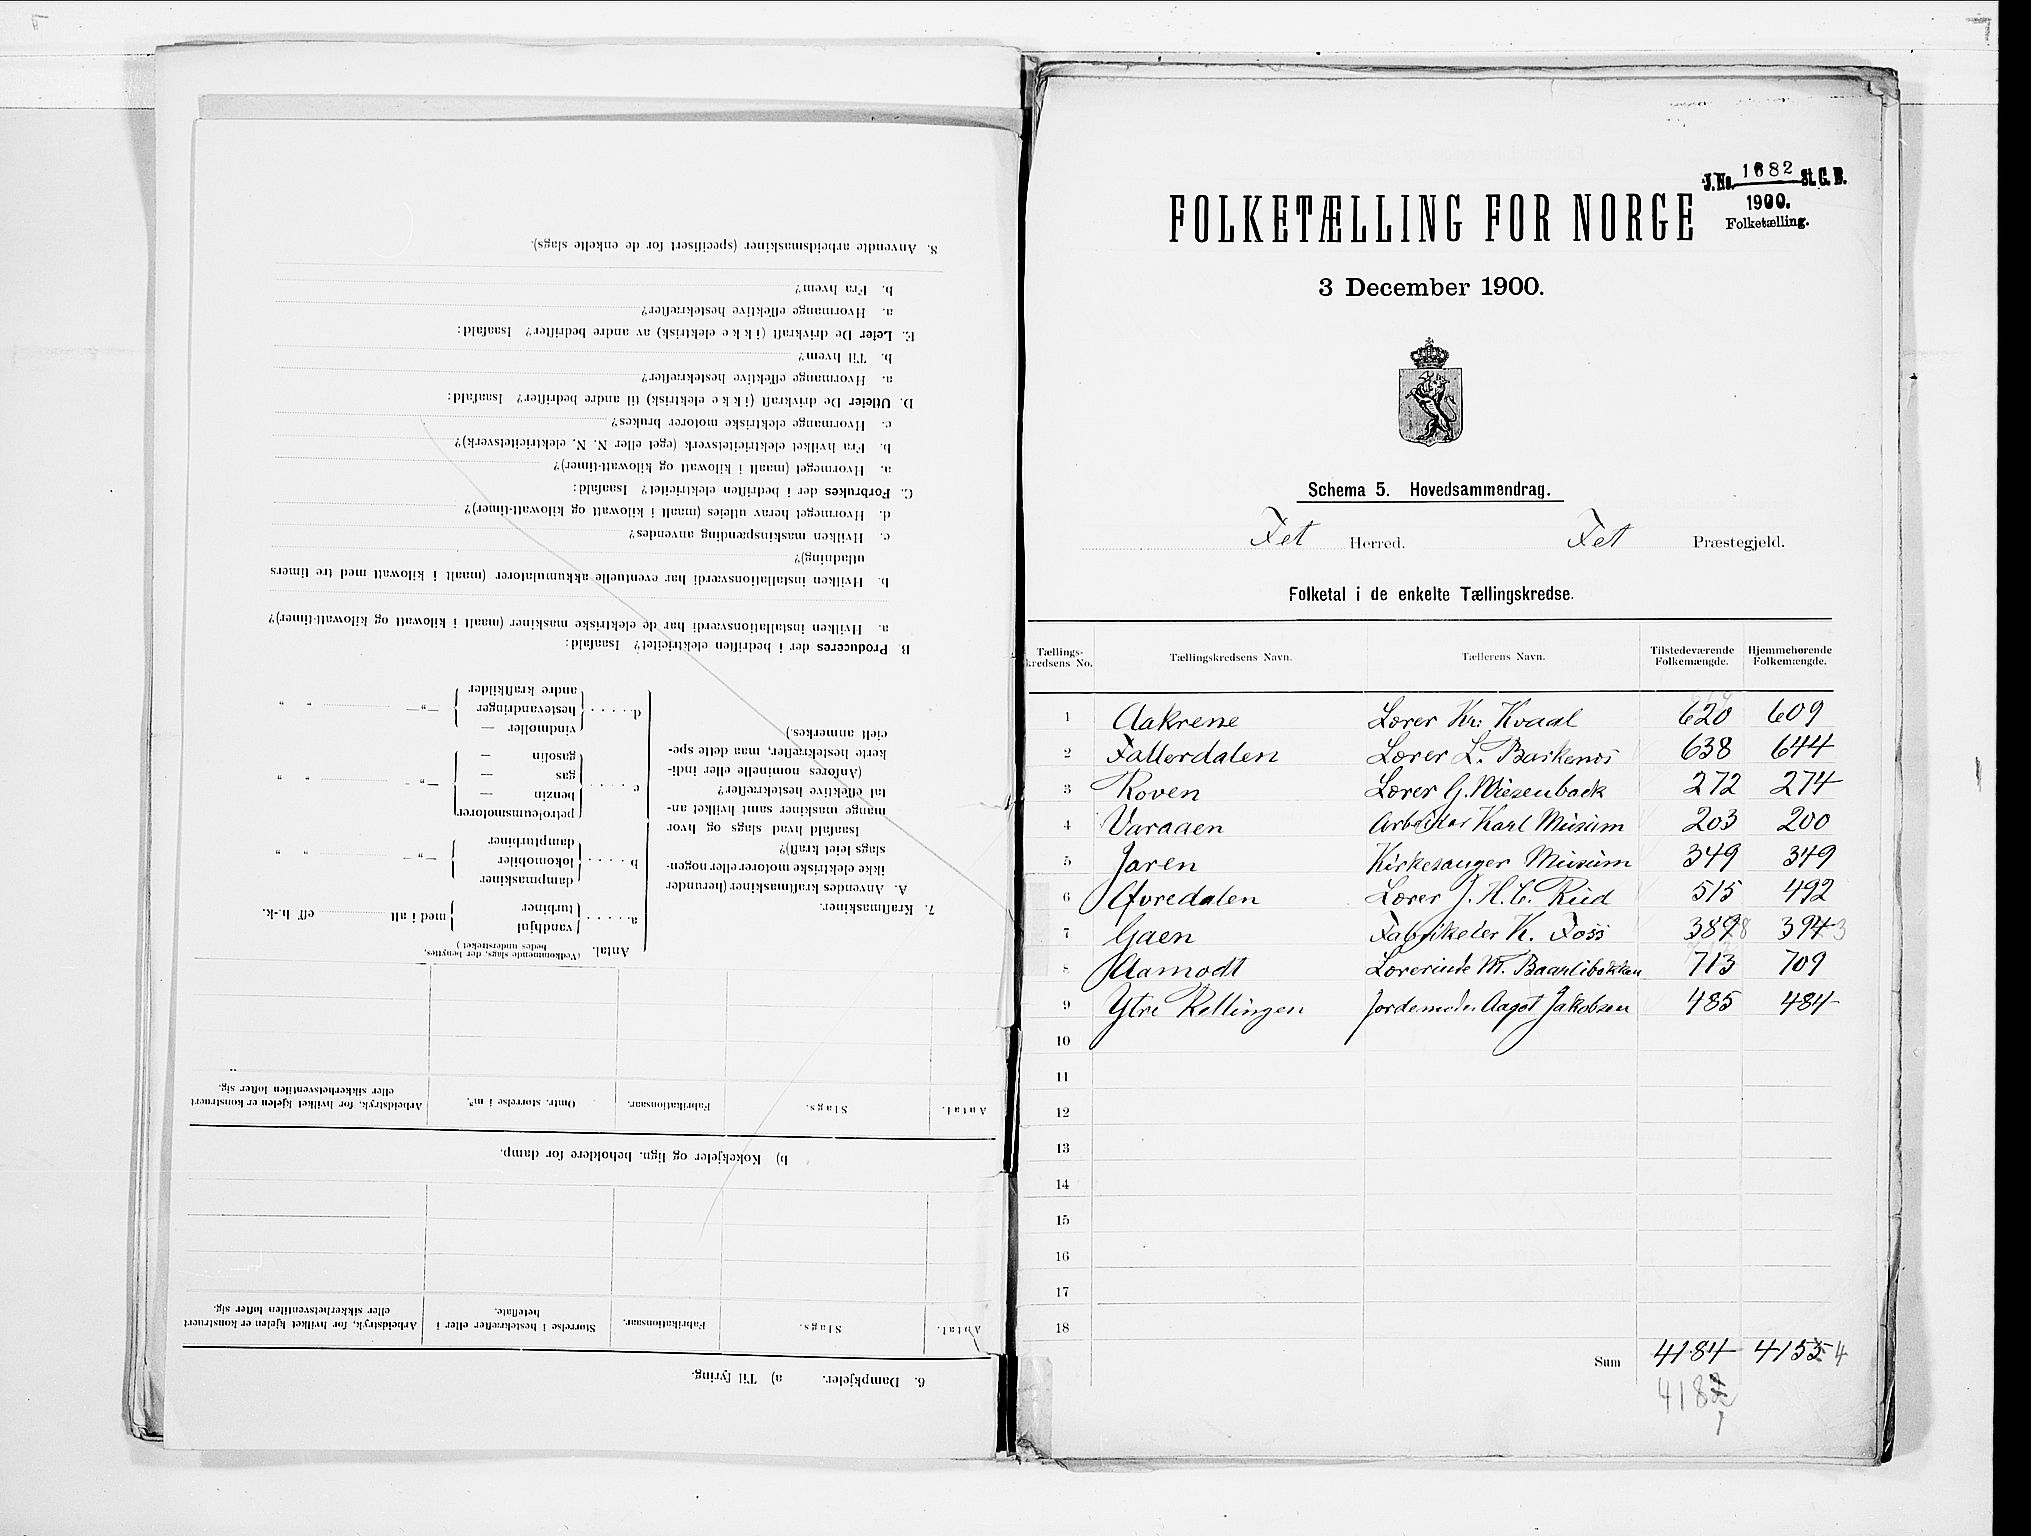 8. Anvendte arbeidsmaskiner (specifisert for de enkelte slags).
b. Fra hvem?
a. Hvormange effektive hestekræfter?
E. Leier De drivkraft (ikke elektrisk) av andre bedrifter? Isaafald:
b. Til hvem?
a. Hvormange effektive hestekræfter?
D. Utleier De drivkraft (ikke elektrisk) til andre bedrifter? Isaafald:
c. Hvormange elektriske motorer brukes?
b. Fra hvilket elektricitetsverk (eget eller N. N. elektricitetsverk)?
a. Hvormeget (maalt i kilowatt og kilowatt-timer)?
C. Forbrukes der i bedriften elektricitet? Isaafald:
d. Hvormeget herav utleies (maalt i kilowatt og kilowatt-timer)?
c. Hvilken maskinspænding anvendes?
utladning)?
b. Hvilken installationsværdi har eventuelle akkumulatorer (maalt i kilowatt med tre timers
a. Hvilken installationsværdi har de elektriske maskiner (maalt i kilowatt og kilowatt-timer)?
B Produceres der i bedriften elektricitet? Isaafald:
andre kraftkilder
d. . . . . hestevandringer —„— „ „
vindmøller —
cielt anmerkes.)
gasolin —
kerte hestekræfter, maa dette spe-
c . . . . gas — —„— „ „
(Anføres nominelle eller indi-
benzin —
tal effektive hestekræfter?
petroleumsmotorer
mange maskiner samt hvilket an-
Isaafald hvad slags og hvor
dampturbiner
slags leiet kraft)?
b . . . . lokomobiler —„— „ „
ikke elektriske motorer eller nogen-
dampmaskiner
A. Anvendes kraftmaskiner (herunder
turbiner
7. Kraftmaskiner.
a. . . . . vandhjul med i alt eff. h.-k.
Antal. (Vedkommende slags, der benyttes, bedes understreket.)
Antal. Slags. Fabrikationsaar. Omtr. størrelse i m³. Arbeidstryk, for hvilket kjelen er konstruert eller sikkerhetsventilen løfter sig.
b) Kokekjeler og lign. beholdere for damp.
Antal. Slags. Fabrikationsaar. Størrelse i hestekræfter eller i heteflate. Arbeidstryk, for hvilket kjelen er konstruert eller sikkerhetsventilen løfter sig.
6. Dampkjeler. a) Til fyring.
J.No. 1682 St. C. B.
1900.
Folketælling.
FOLKETÆLLING FOR NORGE
3 December 1900.
Schema 5. Hovedsammendrag.
Fet Herred. Fet Præstegjeld.
Folketal i de enkelte Tællingskredse.
Tællings-kredsens No. Tællingskredsens Navn. Tællerens Navn. Tilstedeværende Folkemængde. Hjemmehørende Folkemængde.
1 Aakrene Lærer Kr. Kvaal 620 609
2 Fallerdalen Lærer L. 638 644
3 Roven Lærer G. Wiesenback 272 274
4 Varaaen Arbeider Karl Musum 203 200
5 Jaren Kirkesanger Musum 349 349
6 Øvredalen Lærer J. H. C. Rud 515 492
7 Gaen K. Foss 3898 3943
8 Aamodt Lærerinde M. Baarlibakken 713 709
9 Ytre Rællingen Jordemoder Aagot Jakobsen 485 484
10
11
12
13
14
15
16
17
18
Sum 4184 4155 4
418